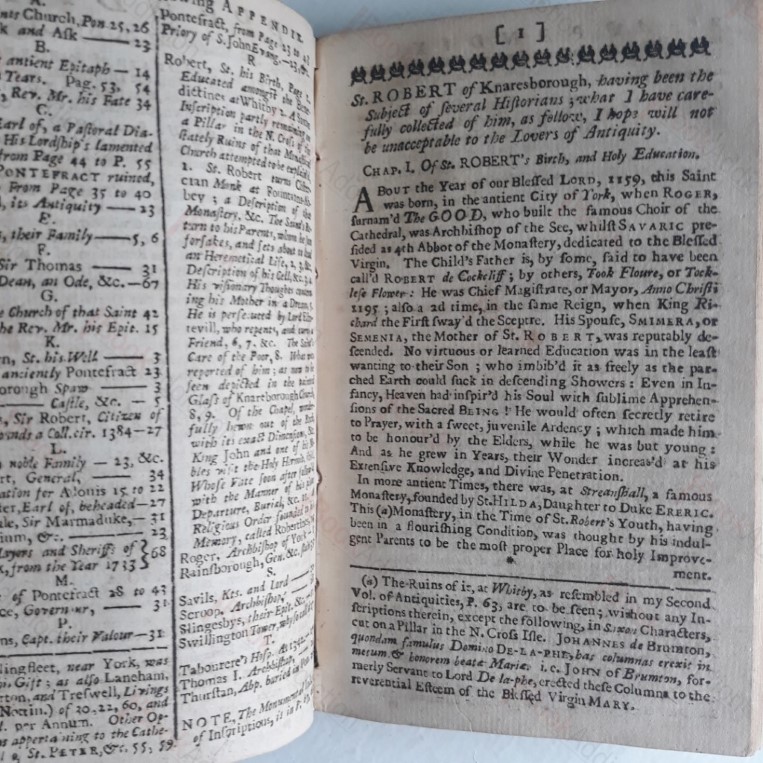 ents Church, Pon. 25, 26
k and Ask — 23
B.
antient Epitaph — 14
Tears. Pag. 53, 54
, Rev. Mr. his Fate 34
C.
Earl of, a Pastoral Dia-
His Lordship's lamented
from Page 44 to P. 55
PONTEFRACT ruined,
From Page 35 to 40
, its Antiquity — 23
E.
, their Family — 5, 6
F.
Sir Thomas — 31
Dean, an Ode, &c. — 67
G.
e Church of that Saint 42
he Rev. Mr. his Epit. 15
K.
n, St. his Well — 3
anciently Pontefract 23
orough Spaw — 3
Castle, &c. — 5
, Sir Robert, Citizen of
ounds a Coll. cir. 1384—27
L.
noble Family — 23, &c.
rt, General, — 34
ation for Adonis 15 to 22
ter, Earl of, beheaded—27
le, Sir Marmaduke, — 31
ium, &c. — 23
Mayors and Sheriffs of } 68
k, from the Year 1733
M.
of Pontefract 28 to 43
ce, Governor, — 31
P.
ns, Capt. their Valour—31
llingfleet, near York, was
Gift; as also Laneham,
rton, and Treswell, Livings
Nottin.) of 20, 22, 60, and
l. per Annum. Other Op-
s appertaining to the Cathe-
St. PETER, &c. 55, 59
owing APPENDIX.
Pontefract, from Page 23 to 43
Priory of S. John Evang.
R
Robert, St. his Birth, Page 1.
Educated amongst the Bene-
dictines at Whitby. A Saxon
Inscription partly remaining on
a Pillar in the N. Cross of the
stately Ruins of that Monastick
Church attempted to be explain'd,
1. St. Robert turns Cister-
cian Monk at Fountains-Ab-
bey; a Description of that
Monastery, &c. The Saint's Re-
turn to his Parents, whom he soon
forsakes, and sets about to lead
an Heremetical Life, 2, 3,
Description of his Cell, &c. 3, 4
His visionary Thoughts concern-
ing his Mother in a Dream, 5.
He is persecuted by Lord Estou-
tevill, who repents, and turns a
Friend, 6, 7, &c. The Saint's
Care of the Poor, 8. What was
reported of him; as now to be
seen depicted in the painted
Glass of Knaresborough Church,
8, 9. Of the Chapel, wonder-
fully hewn out of the Rock
with its exact Dimensions, &c.
King John and one of his No-
bles visit the Holy Hermit,
Whose Fate soon after follows
with the Manner of his
Departure, Burial, &c.
Religious Order founded in
Memory, called Robertins,
Roger, Archbishop of York
Rainsborough, Gen. &c.
Savils, Kts. and Lord —
Scroop, Archbishop,
Slingesbys, their Epit. &c.
Swillington Tower,
T.
Tabourere's Hosp.
Thomas I. Archbishop,
Thurstan, Abp. buried in
NOTE, The Monumental
of Inscriptions, is in P.
[ 1 ]
St. ROBERT of Knaresborough, having been the
Subject of several Historians; what I have care-
fully collected of him, as follow, I hope will not
be unacceptable to the Lovers of Antiquity.
CHAP. I. Of St. ROBERT's Birth, and Holy Education.
ABOUT the Year of our Blessed LORD, 1159, this Saint
was born, in the antient City of York, when ROGER,
surnam'd The GOOD, who built the famous Choir of the
Cathedral, was Archbishop of the See, whilst SAVARIC pre-
sided as 4th Abbot of the Monastery, dedicated to the Blessed
Virgin. The Child's Father is, by some, said to have been
call'd ROBERT de Cockcliff; by others, Took Floure, or Tock-
lese Flower: He was Chief Magistrate, or Mayor, Anno Christi
1195; also a 2d time, in the same Reign, when King Ri-
chard the First sway'd the Sceptre. His Spouse, SMIMERA, or
SEMENIA, the Mother of St. ROBERT, was reputably de-
scended. No virtuous or learned Education was in the least
wanting to their Son; who imbib'd it as freely as the par-
ched Earth could suck in descending Showers: Even in In-
fancy, Heaven had inspir'd his Soul with sublime Apprehen-
sions of the Sacred BEING! He would often secretly retire
to Prayer, with a sweet, juvenile Ardency; which made him
to be honour'd by the Elders, while he was but young:
And as he grew in Years, their Wonder increas'd at his
Extensive Knowledge, and Divine Penetration.
In more ancient Times, there was, at Streanshall, a famous
Monastery, founded by St. HILDA, Daughter to Duke ERERIC.
This (a) Monastery, in the Time of St. Robert's Youth, having
been in a flourishing Condition, was thought by his indul-
gent Parents to be the most proper Place for holy Improve-
ment.
(a) The Ruins of it, at Whitby, as resembled in my Second
Vol. of Antiquities, P. 63, are to be seen; without any In-
scriptions therein, except the following, in Saxon Characters,
cut on a Pillar in the N. Cross Isle. JOHANNES de Brumton,
quondam famulus Domino DE-LA-PHE, has columnas erexit in
metum & honorem beatæ Mariæ: i.e. JOHN of Brumton, for-
merly Servant to Lord De la-phe, erected these Columns to the
reverential Esteem of the Blessed Virgin MARY.